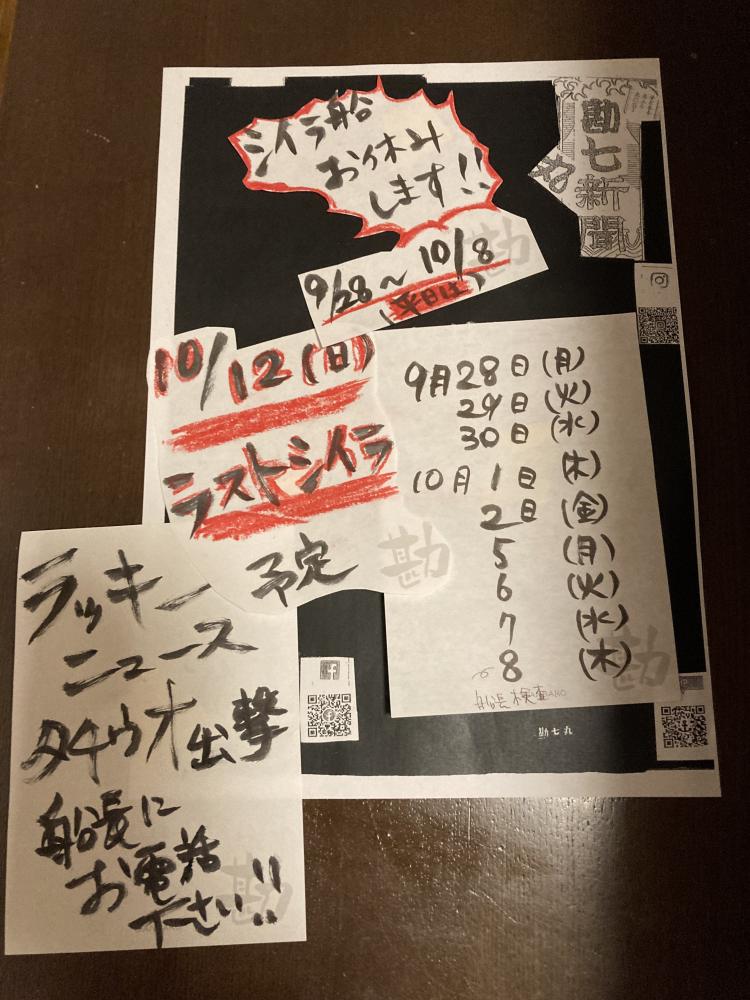 勘七新聞
シイラ船
お休み
します!!
9/28〜10/8
(平日は)
10/12(日)
ラストシイラ
予定
勘
9月28日(月)
29日(火)
30日(水)
10月1日(木)
2日(金)
5(月)
6(火)
7(水)
8(木)
船長検査
勘
勘七丸
ラッキー
ニュース
タチウオ出撃
船長に
お電話
下さい!!
勘